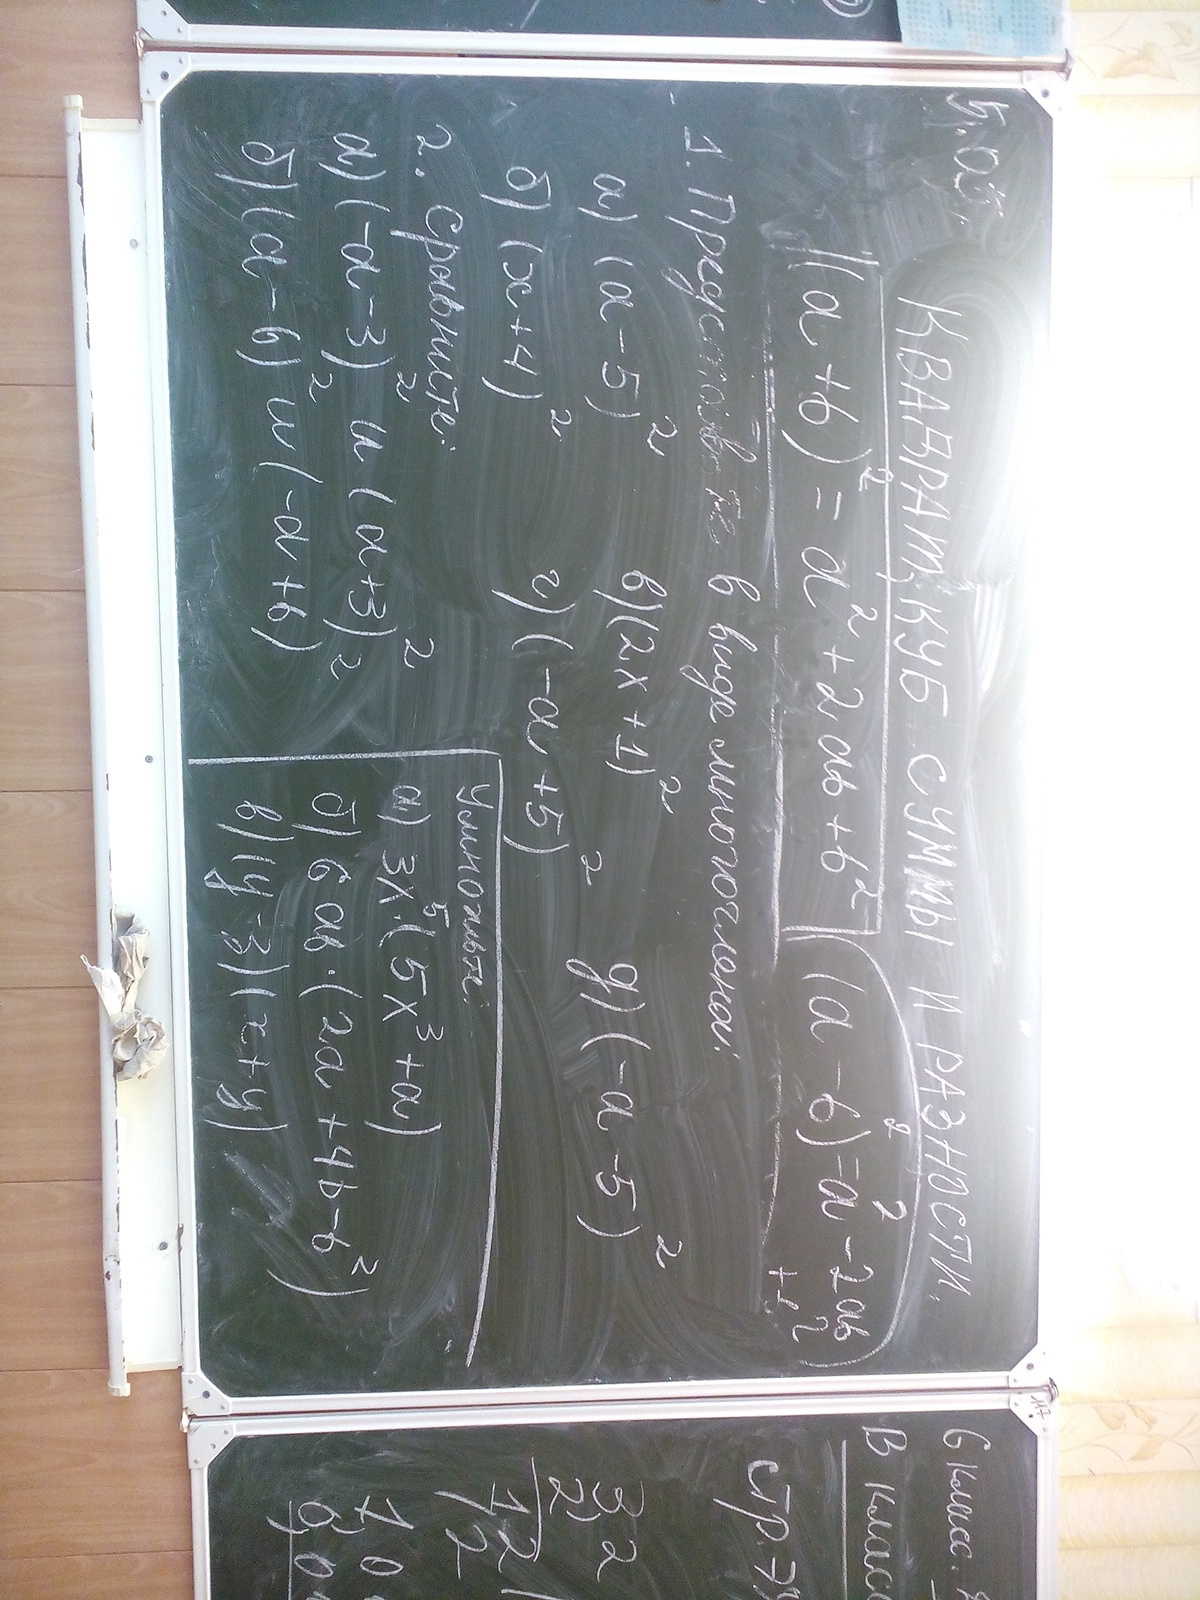 5.05.
КВАДРАТ, КУБ СУММЫ И РАЗНОСТИ.
(a+b)² = a² + 2ab + b²
(a-b)² = a² - 2ab + b²
1. Представьте в виде многочлена:
а) (a-5)² в) (2x+1)² д) (-a-5)²
б) (x+4)² г) (-a+5)²
2. Сравните:
а) (-a-3)² и (a+3)²
б) (a-b)² и (-a+b)²
Умножьте:
а) 3x⁵·(5x³+a)
б) 6ab·(2a+4b-b²)
в) (y-3)(x+y)
6 класс.
В класс
стр.